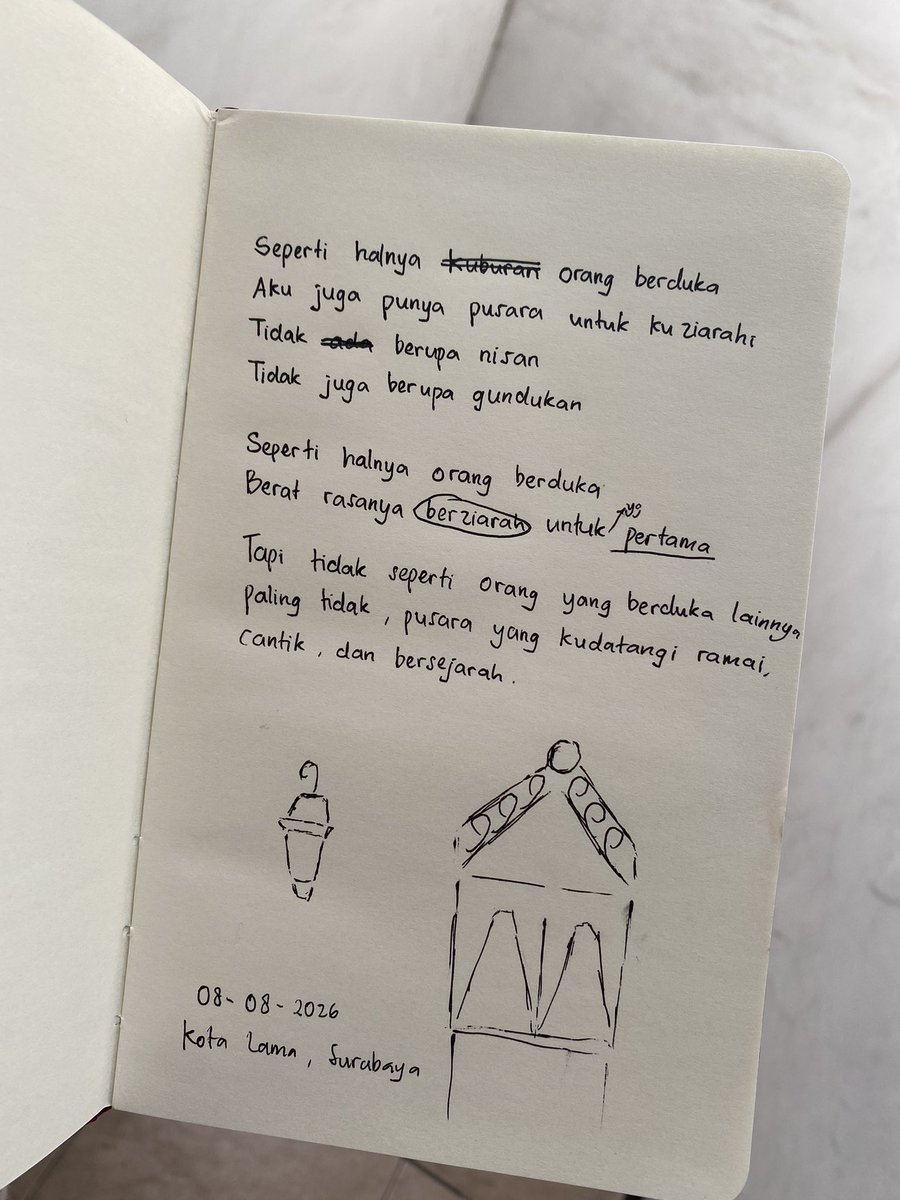 Seperti halnya kuburan orang berduka
Aku juga punya pusara untuk ku ziarahi
Tidak ada berupa nisan
Tidak juga berupa gundukan
Seperti halnya orang berduka
Berat rasanya berziarah untuk yg pertama
Tapi tidak seperti orang yang berduka lainnya
paling tidak, pusara yang kudatangi ramai,
cantik, dan bersejarah.
08-08-2026
Kota Lama, Surabaya